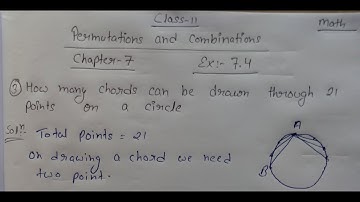 Class-11
Math
Permutations and Combinations
Chapter-7
Ex:- 7.4
3 How many chords can be drawn through 21
points on a circle
Solⁿ. Total points = 21
On drawing a chord we need
two point.
A
B